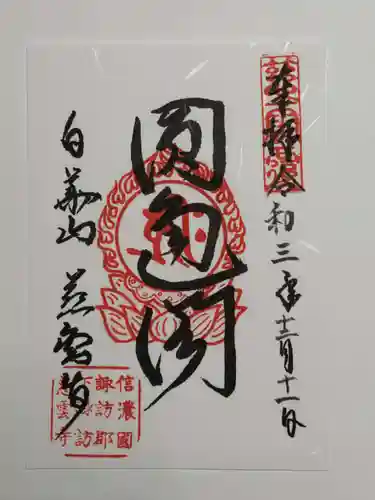 奉拝 令和三年十二月十一日
圓通閣
白華山 慈雲寺
信濃國
諏訪郡
下諏訪
慈雲寺